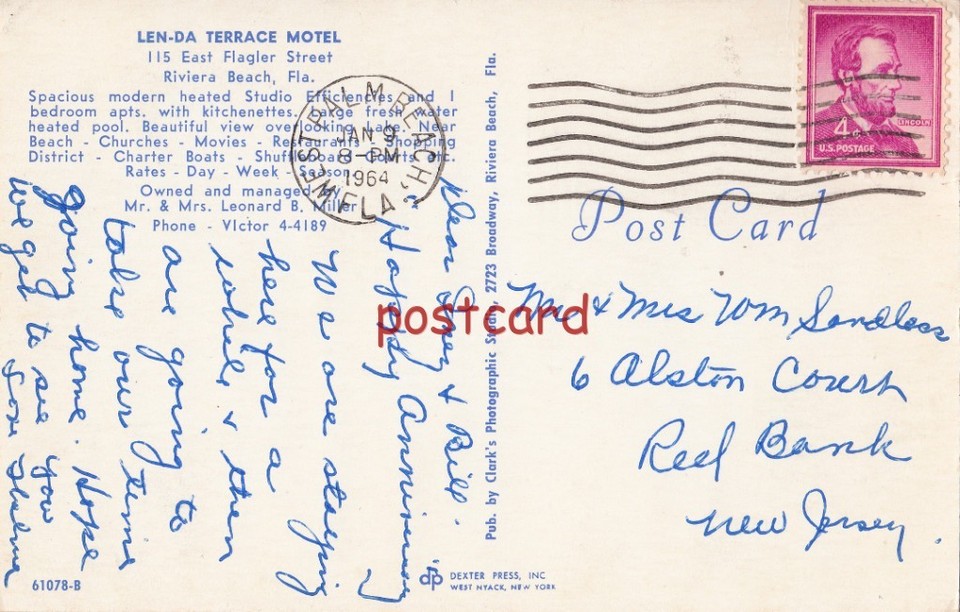 LEN-DA TERRACE MOTEL
115 East Flagler Street
Riviera Beach, Fla.
Spacious modern heated Studio Efficiencies and 1
bedroom apts. with kitchenettes. Large fresh water
heated pool. Beautiful view overlooking Lake. Near
Beach - Churches - Movies - Restaurants - Shopping
District - Charter Boats - Shuffleboard etc.
Rates - Day - Week - Season
Owned and managed
Mr. & Mrs. Leonard B. Miller
Phone - VIctor 4-4189
Dear & Bill.
"Happy Anniversary"
We are staying
here for a
while & then
are going to
take our time
going home. Hope
we get to see you
Love Thelma
61078-B
Pub. by Clark's Photographic Studio, 2723 Broadway, Riviera Beach, Fla.
DEXTER PRESS, INC
WEST NYACK, NEW YORK
WEST PALM BEACH, FLA.
JAN 9
8-PM
1964
4¢
LINCOLN
U.S. POSTAGE
Post Card
Mr & Mrs Wm Sandlass
6 Alston Court
Red Bank
New Jersey.
postcard